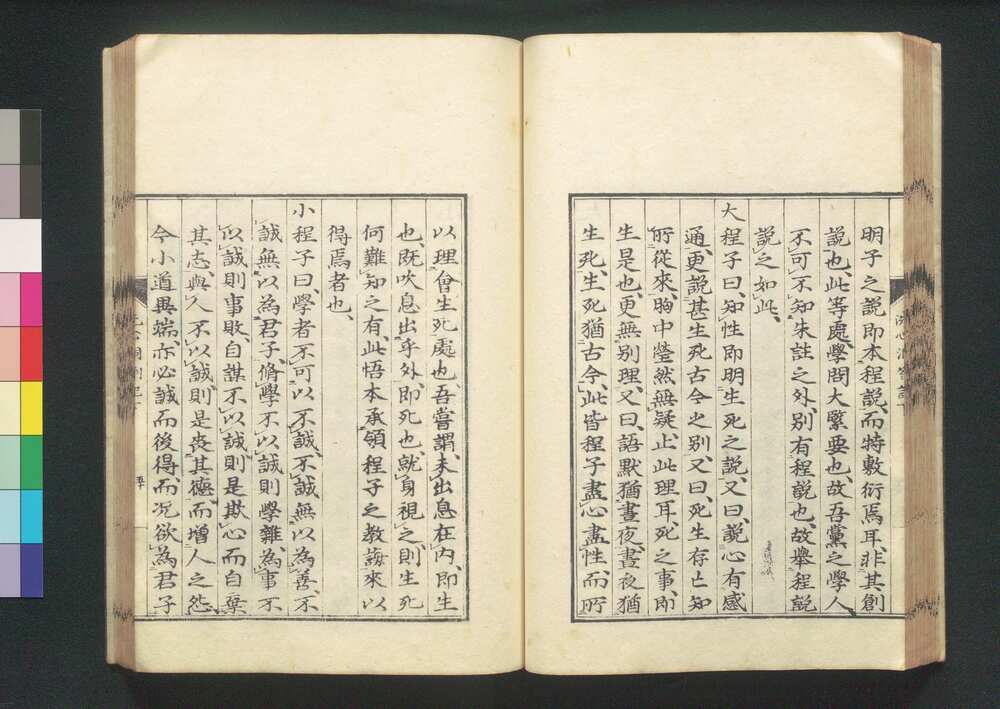 明子之説即本程説、而特敷衍焉耳、非其創
説也、此等處、學問大緊要也、故吾黨之學人
不可不知朱註之外、別有程説也、故舉程説
説之如此、
大程子曰、知性即明生死之説、又曰、説心有感
通、更説甚生死古今之別、又曰、死生存亡知
所從來、胸中瑩然無疑、止此理耳、死之事、即
生是也、更無別理、又曰、語默猶晝夜、晝夜猶
生死、生死猶古今、此皆程子盡心盡性、而所
以理會生死處也、吾嘗謂未出息在内、即生
也、既吹息出乎外、即死也、就身視之、則生死
何難知之有、此悟本承領程子之教誨來以
得焉者也、
小程子曰、學者不可以不誠、不誠無以為善、不
誠無以為君子、脩學不以誠則學雜、為事不
以誠則事敗、自謀不以誠、則是欺心而自棄
其志、與人不以誠、則是喪其德、而增人之怨、
今小道異端、亦必誠而後得、而况欲為君子